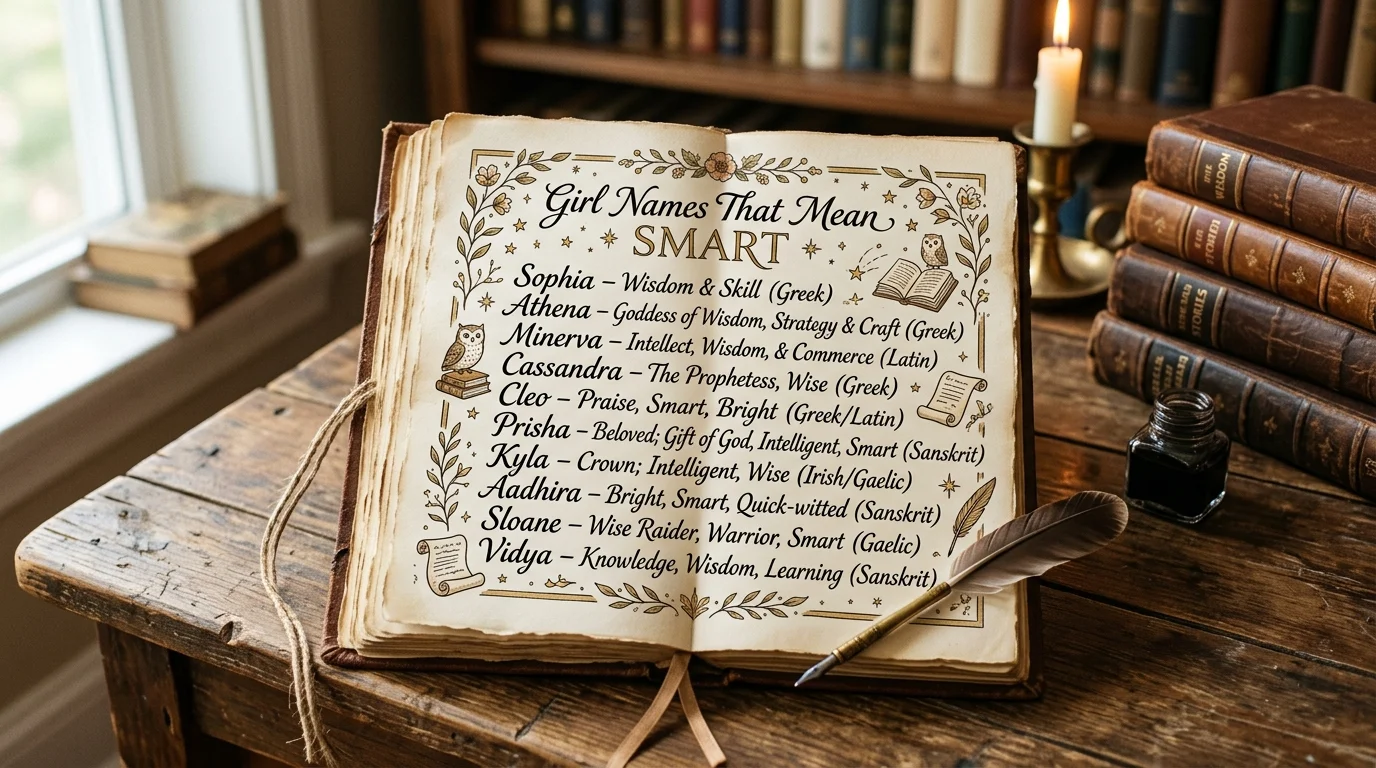 Girl Names That Mean
SMART
Sophia – Wisdom & Skill (Greek)
Athena – Goddess of Wisdom, Strategy & Craft (Greek)
Minerva – Intellect, Wisdom, & Commerce (Latin)
Cassandra – The Prophetess, Wise (Greek)
Cleo – Praise, Smart, Bright (Greek/Latin)
Prisha – Beloved; Gift of God, Intelligent, Smart (Sanskrit)
Kyla – Crown; Intelligent, Wise (Irish/Gaelic)
Aadhira – Bright, Smart, Quick-witted (Sanskrit)
Sloane – Wise Raider, Warrior, Smart (Gaelic)
Vidya – Knowledge, Wisdom, Learning (Sanskrit)
STORIES